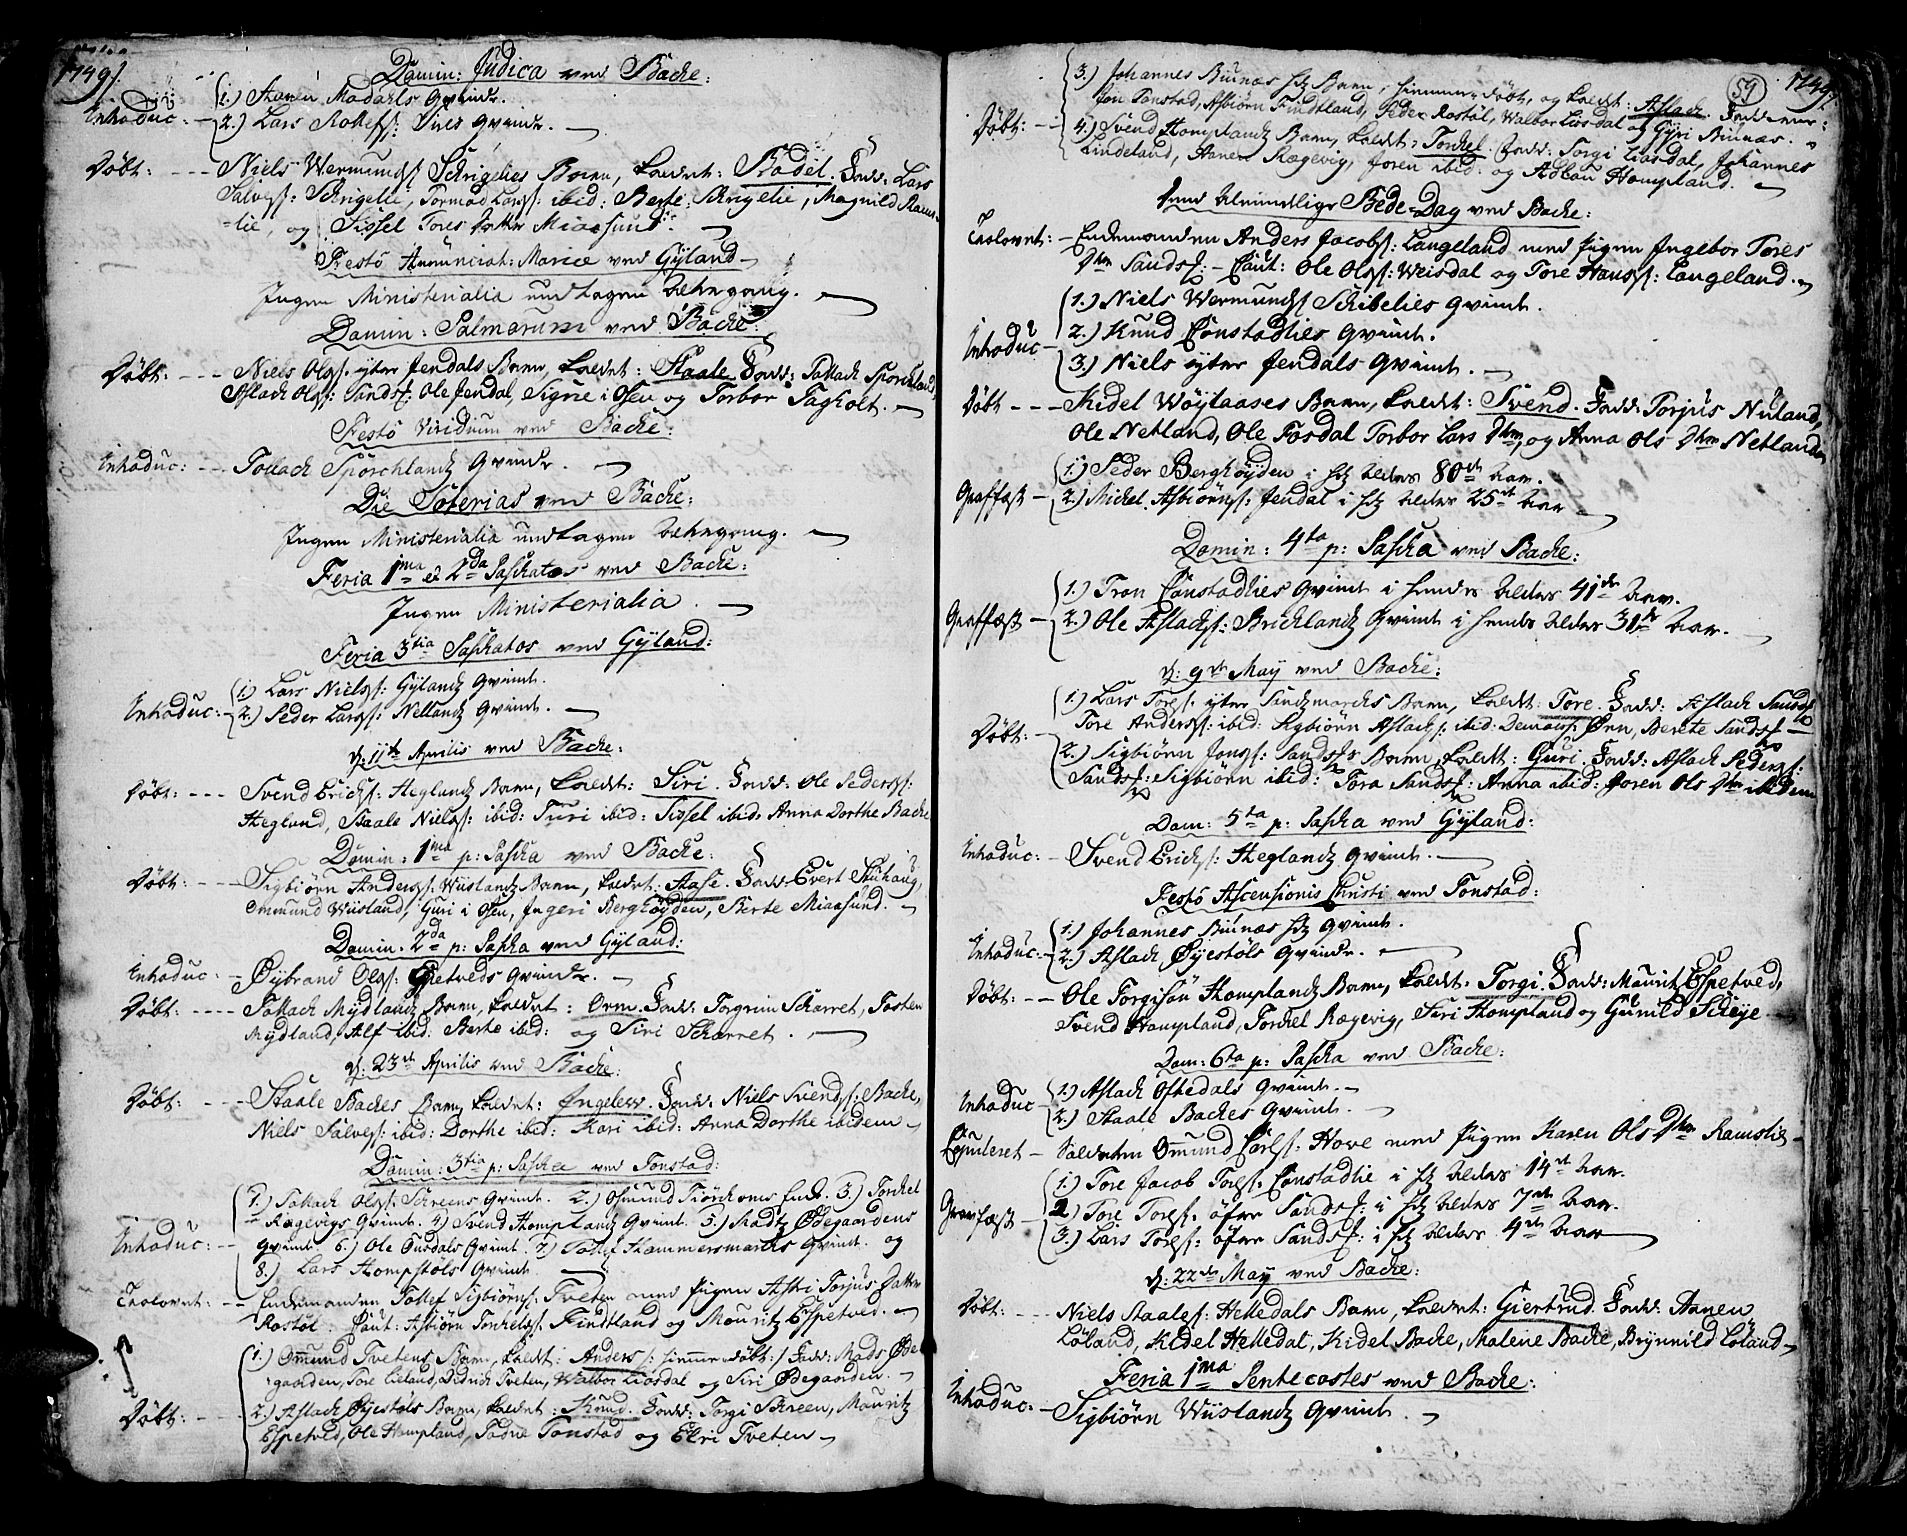 1749/.
Domin: Judica ved Backe:
Introduc: - 1.) Aanen Modahls Qvinde.
2.) Lars Rollefs: Sires Qvinde.
Døbt: --- Niels Wermunds: Schrigelies Barn, kaldet: Bodel. Fadd: Lars
Salves: Schrigelie, Tormod Lars: ibid: Berte Schrigelie, Magnild Rams-
-lie, og Sissel Tores Datter Miaasund.
Festo Annunciat: Mariæ ved Gÿland
Ingen Ministerialia undtagen Betregang.
Domin: Palmarum ved Backe:
Døbt: --- Niels Ols: ytre Jendals Barn, kaldet: Staale. Fadd: Tallach Sporchland,
Aslach Ols: Sands: Ole Jendal, Signe i Osen og Torbor Fagholt.
Festo Viridium ved Backe:
Introduc: -- Tollach Spörchlands Qvinde.
Die Soterias ved Backe:
Ingen Ministerialia undtagen Betregang.
Feria 1ma et 2da Paschatos ved Backe:
Ingen Ministerialia.
Feria 3tia Paschatos ved Gÿland:
Introduc: - 1.) Lars Niels: Gÿlands Qvinde.
2.) Peder Lars: Netlands Qvinde.
d: 11te Aprilis ved Backe:
Døbt: --- Svend Erichs: Heglands Barn, kaldet: Siri. Fadd: Ole Peders:
Hegland, Staale Niels: ibid: Turi ibid: Sissel ibid: Anna Dorthe Backe
Domin: 1ma p: Pascha ved Backe:
Døbt: --- Sigbiörn Anders: Wiislands Barn, kaldet: Aase. Fadd: Evert Stuhaug,
Ommund Wiisland, Guri i Osen, Ingeri Berghöÿden, Berte Miaasund.
Domin: 2da p: Pascha ved Gÿland:
Introduc: - Øÿbrand Ols: Espetveds Qvinde.
Døbt: ---- Tollach Mÿdlands Barn, kaldet: Orm. Fadd: Torgrim Scharret, Torsten
Mÿdland, Alf ibid: Berte ibid: og Siri Scharret.
d: 23de Aprilis ved Backe:
Døbt: --- Staale Backes Barn, kaldet: Ingeleev. Fadd: Niels Svends: Backe,
Niels Salves: ibid: Dorthe ibid: Kari ibid: Anna Dorthe ibidem
Domin: 3tia p: Pascha ved Tonstad:
1.) Tollach Ols: Schreens Qvinde. 2.) Osmund Tiörchoms Enke. 3.) Torchel
Rægevigs Qvinde. 4.) Svend Homplands Qvinde. 5.) Madtz Ødegaardens
Introduc: -- Qvinde. 6.) Ole Ousdals Qvinde. 7.) Tollef Hammersmarchs Qvinde. og
8.) Lars Hompstöls Qvinde.
Trolovet: -- Enkemanden Tollef Sigbiörns: Tveten med Pigen Astri Torjus Datter
Rostöl. Caut: Asbiörn Torchels: Findtland og Mouritz Espetved.
1.) Ommund Tvetens Barn, kaldt: Anders /: hiemme-döbt :/ Fadd: Mads Øde-
gaarden, Tore Lieland, Didrich Tveten, Walbor Liosdal og Siri Ødegaarden.
Døbt: --- 2.) Aslach Øÿestöls Barn, kaldet: Knud. Fadd: Torgi Schreen, Mouritz
Espetved, Ole Hompland, Todne Tonstad og Elri Tveten
59
1749/.
3.) Johannes Buinæs hs: Barn, hiemme-döbt, og kaldet: Aslach. Fadderne:
Jon Tonstad, Asbiörn Findtland, Peder Rostöl, Walbor Liosdal og Gÿri Buinæs.
Døbt: -- 4.) Svend Homplands Barn, kaldet: Torchel. Fadd: Torgi Liosdal, Johannes
Lindeland, Aanen Rægevig, Joren ibid: og Adlau Hompland.
Den Almindelige Bede-Dag ved Backe:
Trolovet: - Enkemanden Anders Jacobs: Langeland med Pigen Ingebor Tores
Dtr Sands: - Caut: Ole Ols: Weisdal og Tore Hans: Langeland.
1.) Niels Wermunds: Schibelies Qvinde.
Introduc - 2.) Knud Constadlies Qvinde.
3.) Niels ytre Jendals Qvinde.
Døbt --- Kidel Wöÿlaases Barn, kaldet: Svend. Fadd: Torjus Nuland,
Ole Netland, Ole Fosdal Torbor Lars Dtr, og Anna Ols Dtr Netland
1.) Peder Berghöÿden i hs: Alders 80de Aar.
Graffæst - 2.) Michel Asbiörns: Jendal i hs: Alders 25de Aar
Domin: 4ta p: Pascha ved Backe:
1.) Tron Constadlies Qvinde i hendes Alders 41de Aar.
Graffæst - 2.) Ole Aslachs: Birchlands Qvinde i hendes Alders 31de Aar.
d: 9de Maÿ ved Backe:
1.) Lars Tores: ytre Lindsmarchs Barn, kaldet: Tore. Fadd: Aslach Sands:
Tore Anders: ibid: Sigbiörn Aslachs: ibid: Øen, Berete Sands:
Døbt: - 2.) Sigbiörn Jons: Sands: Barn, kaldt: Guri. Fadd: Aslach Peders:
Sands: Sigbiörn ibid: Tora Sands: Anna ibid: Joren Ols Dtr ibidem
Dom: 5ta p: Pascha ved Gÿland:
Introduc: - Svend Erichs: Heglands Qvinde.
Festo Ascensionis Christi ved Tonstad:
1.) Johannes Buinæs hs: Qvinde.
Introduc: - 2.) Aslach Øÿestöls Qvinde.
Døbt: -- Ole Torgisön Homplands Barn, kaldet: Torgi. Fadd: Mouritz Espetved,
Svend Hompland, Torchel Rægevig, Siri Hompland og Gunild Schieÿe.
Dom: 6ta p: Pascha ved Backe:
1.) Aslach Oftedals Qvinde.
Introduc - 2.) Staale Backes Qvinde.
Copuleret - Soldaten Ommund Carls: Hove med Pigen Karen Ols Dtr Ramslie
1.) Tore Jacob Tores: Constadlie i hs: Alders 14de Aar.
Gravfæst - 2.) Tore Tores: öfre Sands: i hs: Alders 7de Aar.
3.) Lars Tores: öfre Sands: i hs: Alders 4de Aar
d: 22de Maÿ ved Backe:
Døbt: --- Niels Staales: Helledals Barn, kaldet: Giertrud. Fadd: Aanen
Löland, Kidel Helledal, Kidel Backe, Malene Backe, Brÿnnild Löland
Feria 1ma Pentecostes ved Backe:
Introduc: - Sigbiörn Wiislands Qvinde.